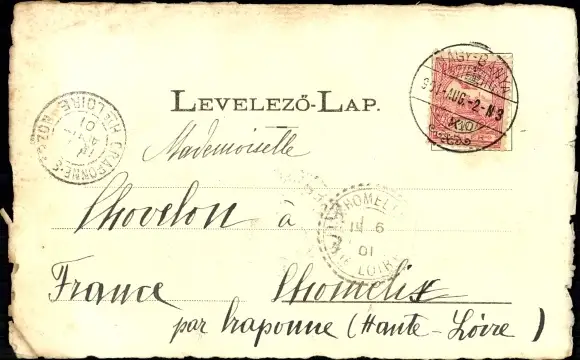 LEVELEZŐ-LAP.
NAGY-BÁNYA
901-AUG.-2-N3
CRAPONNE-S
01
HTE LOIRE
Mademoiselle
Chovelon à
CHOMELIX
6
01
HTE LOIRE
France Chomelix
par Craponne (Haute-Loire)